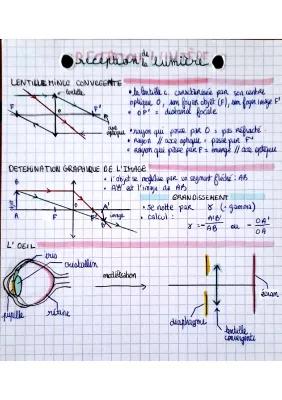 réception de la lumière
LENTILLE MINCE CONVERGENTE
lentille
F
O
F'
axe optique
• la lentille c. caractérisée par son centre
optique O, son foyer objet (F), son foyer image F'
• OF' = distance focale
• rayon qui passe par O = pas réfracté
• rayon // axe optique = passe par F'
• rayon qui passe par F = émerge // axe optique
DETEMINATION GRAPHIQUE DE L'IMAGE
• l'objet se modélise par un segment fléché : AB
• A'B' est l'image de AB
B
A
F
O
F'
A'
B'
image
GRANDISSEMENT
• se note par γ (= gamma)
• calcul : γ = A'B' / AB ou OA' / OA
L'OEIL
iris
cristallin
pupille
rétine
modélisation
diaphragme
lentille
convergente
écran